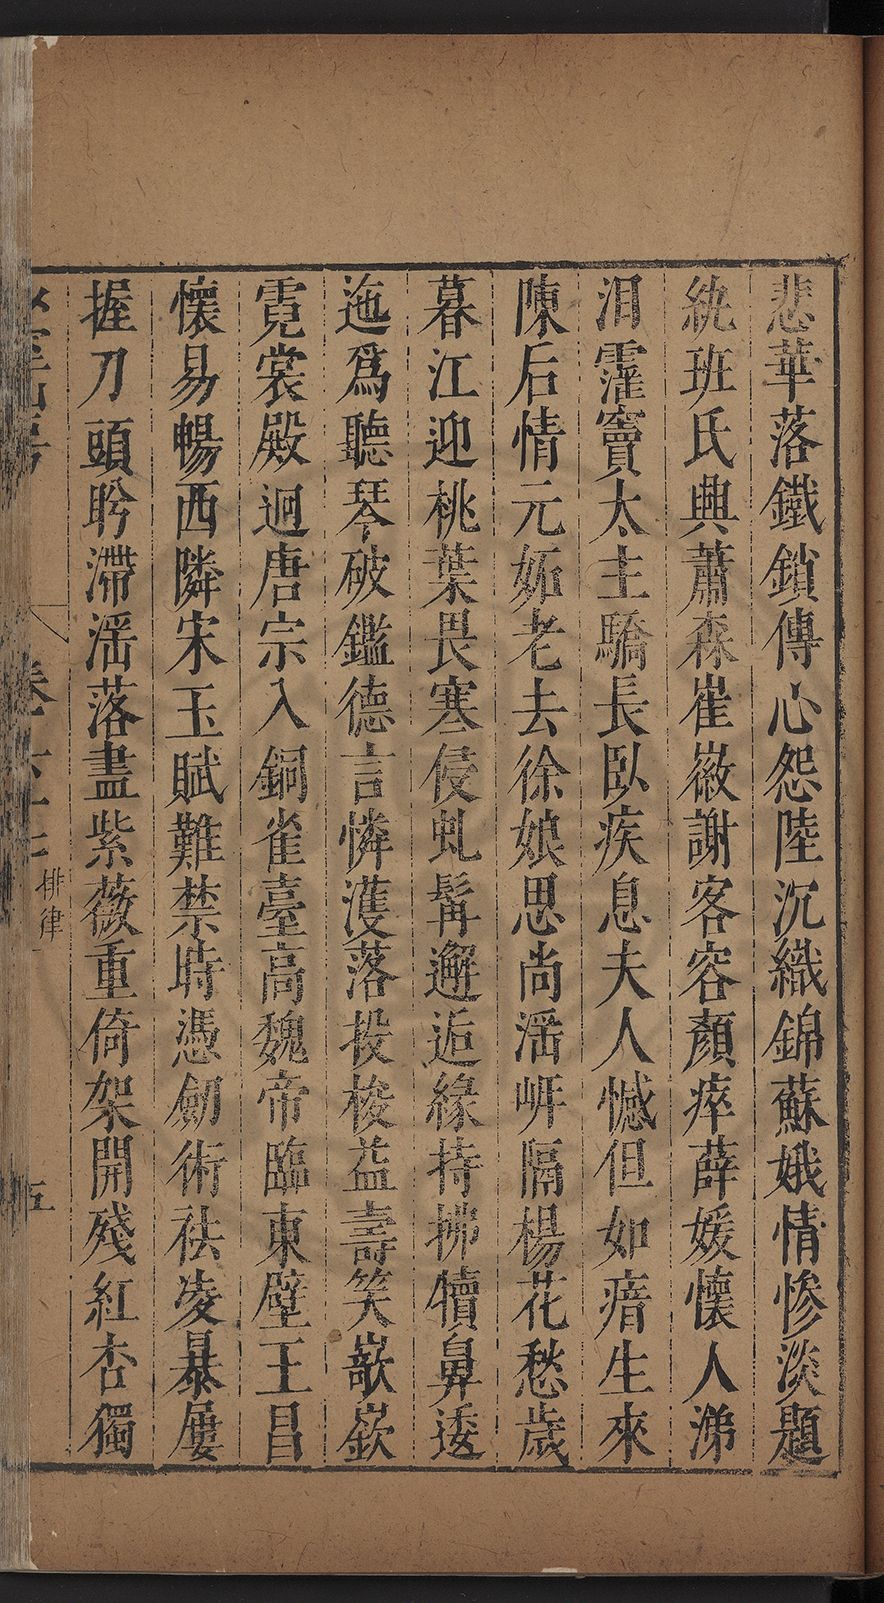 悲華落鐵鎖傳心怨陸沉織錦蘇娥情慘淡題
紈班氏興蕭森崔徽謝客容顏瘁薛媛懷人涕
泪霪竇太主驕長臥疾息夫人憾但如瘖生來
陳后情元妬老去徐娘思尚滛岍隔楊花愁歲
暮江迎桃葉畏寒侵虬髯邂逅緣持拂犢鼻逶
迤爲聽琴破鑑德言憐濩落投梭益壽笑嶔
霓裳殿迥唐宗入銅雀臺高魏帝臨東壁王昌
懷易暢西隣宋玉賦難禁時憑劒術袪凌暴屢
握刀頭昑滯滛落盡紫薇重倚架開殘紅杏獨
卷
排律
五